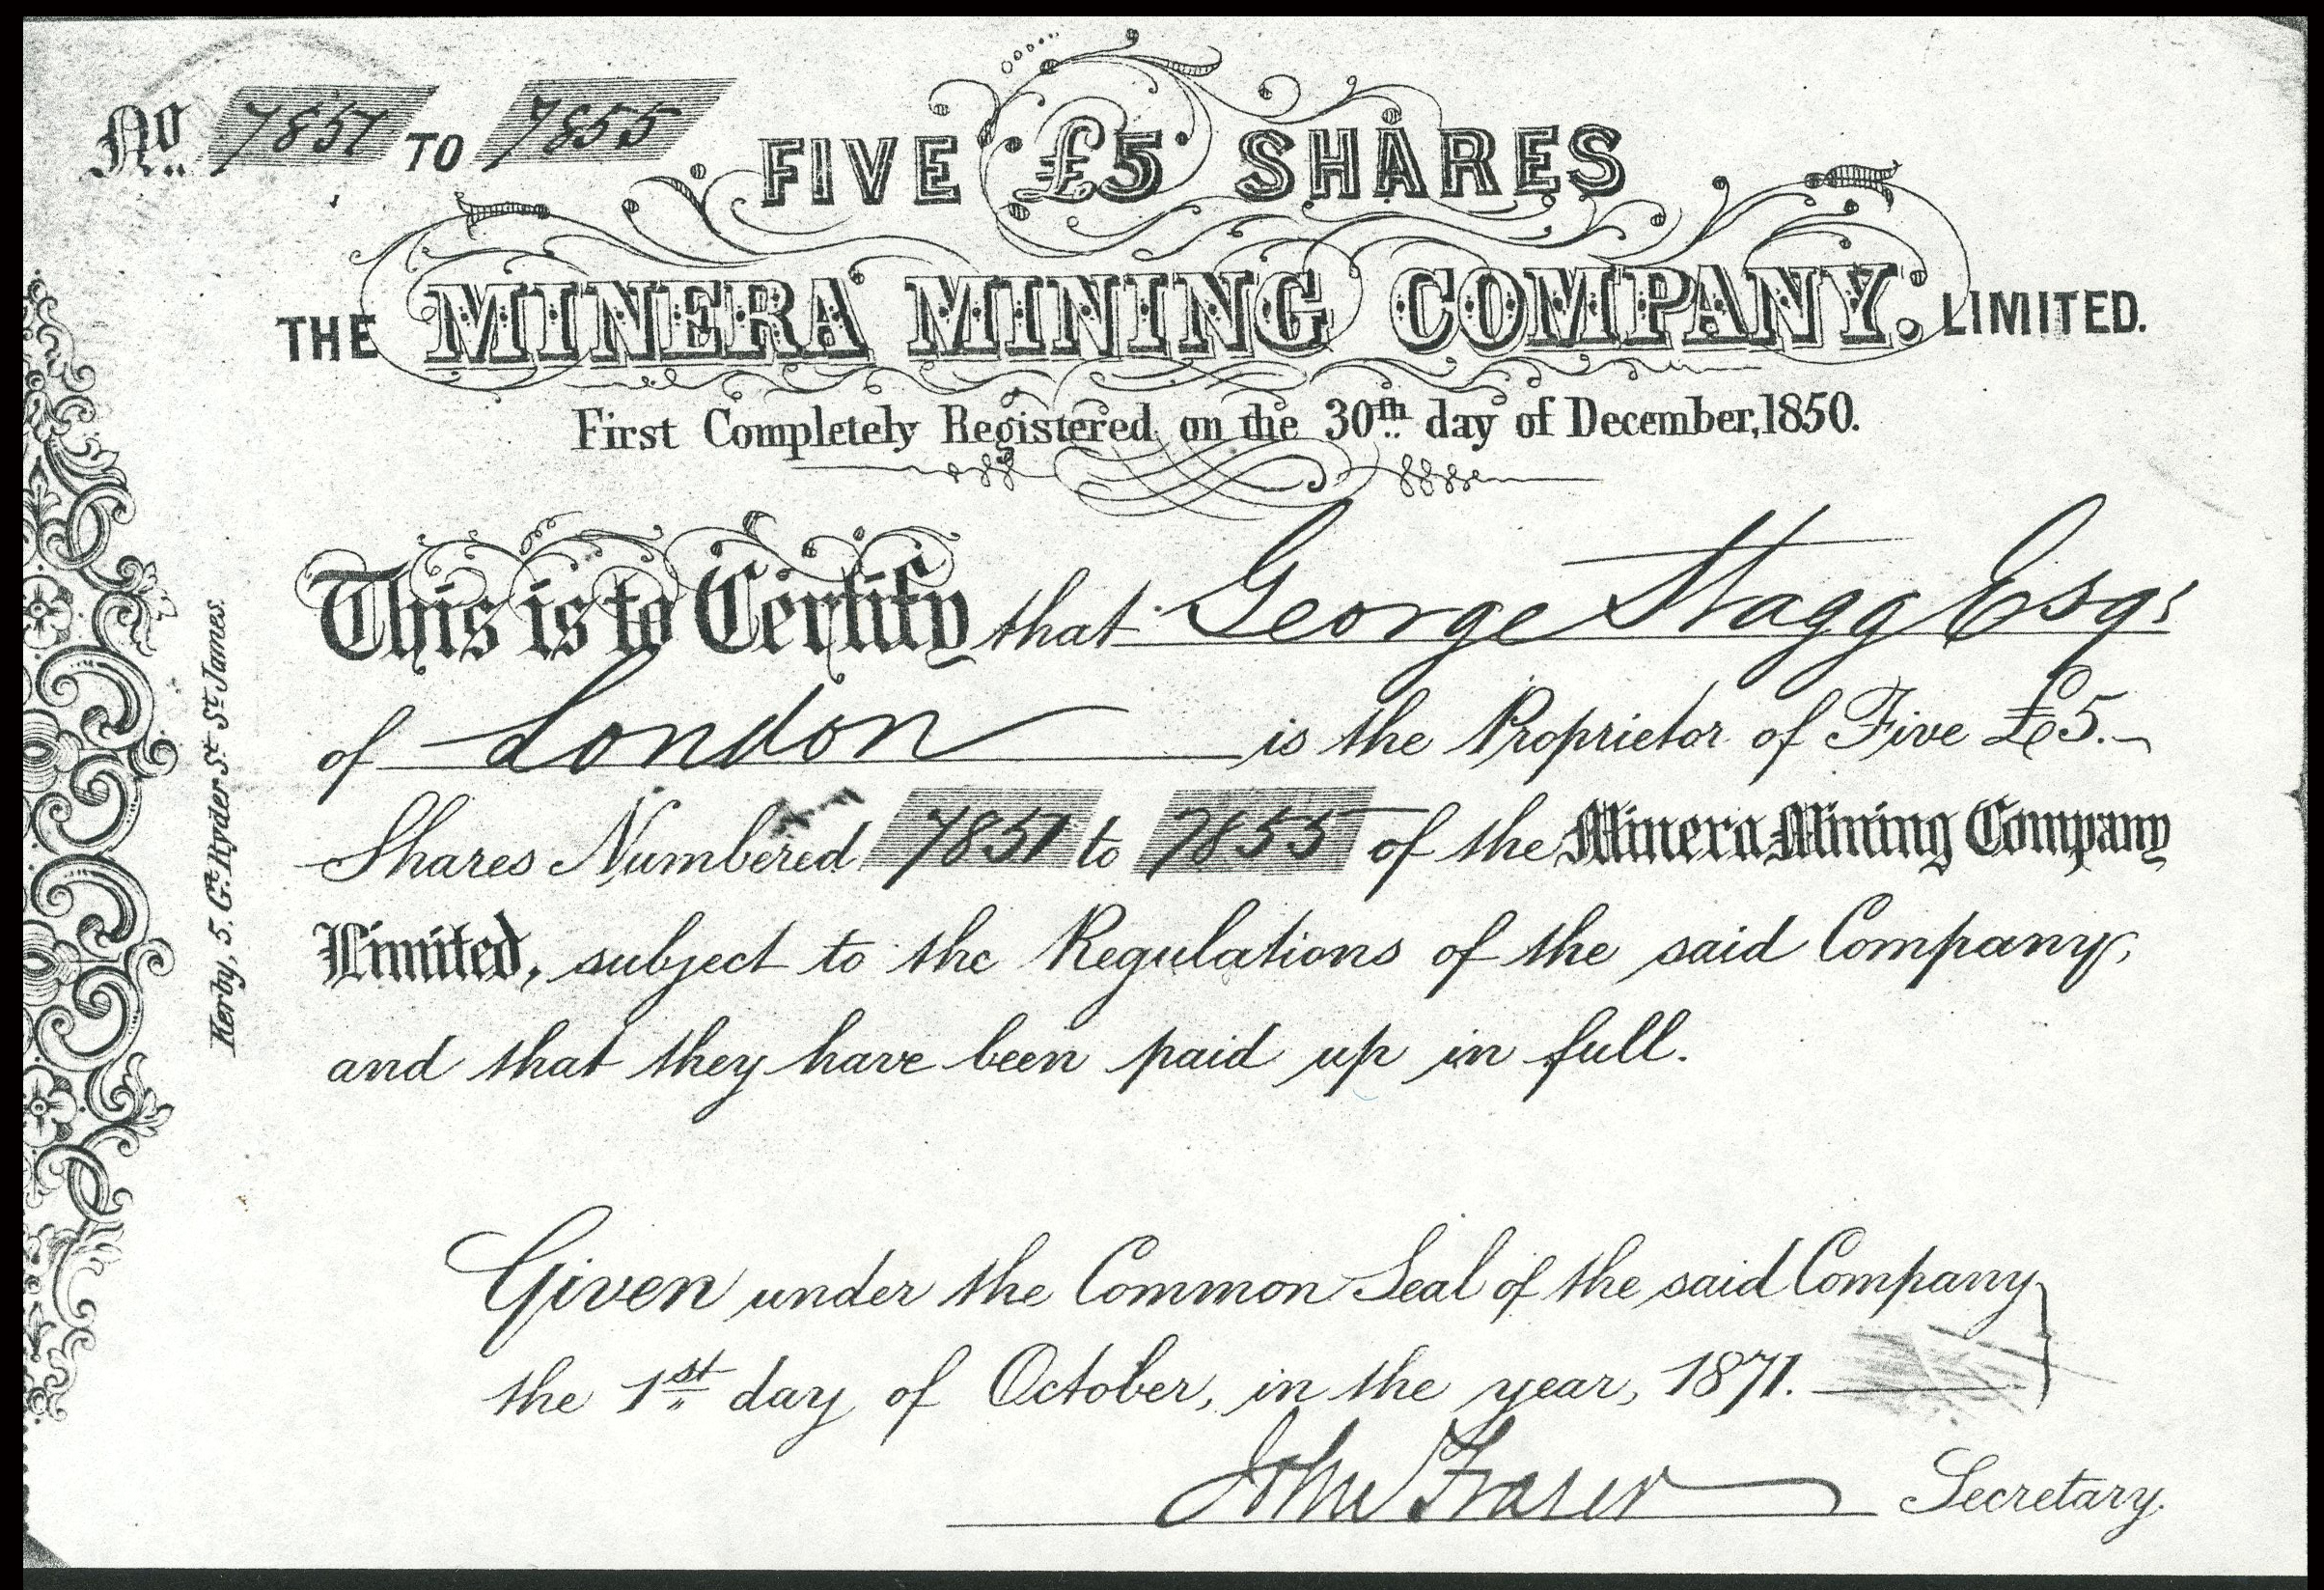 No. 7851 TO 7855
FIVE £5 SHARES
THE MINERA MINING COMPANY. LIMITED.
First Completely Registered on the 30th day of December, 1850.
This is to Certify that George Stagg Esqr
of London is the Proprietor of Five £5.
Shares Numbered 7851 to 7855 of the Minera Mining Company
Limited, subject to the Regulations of the said Company,
and that they have been paid up in full.
Given under the Common Seal of the said Company
the 1st day of October, in the year, 1871.
John Fraser Secretary.
Kerby, 5. Gt. Ryder St. St. James.